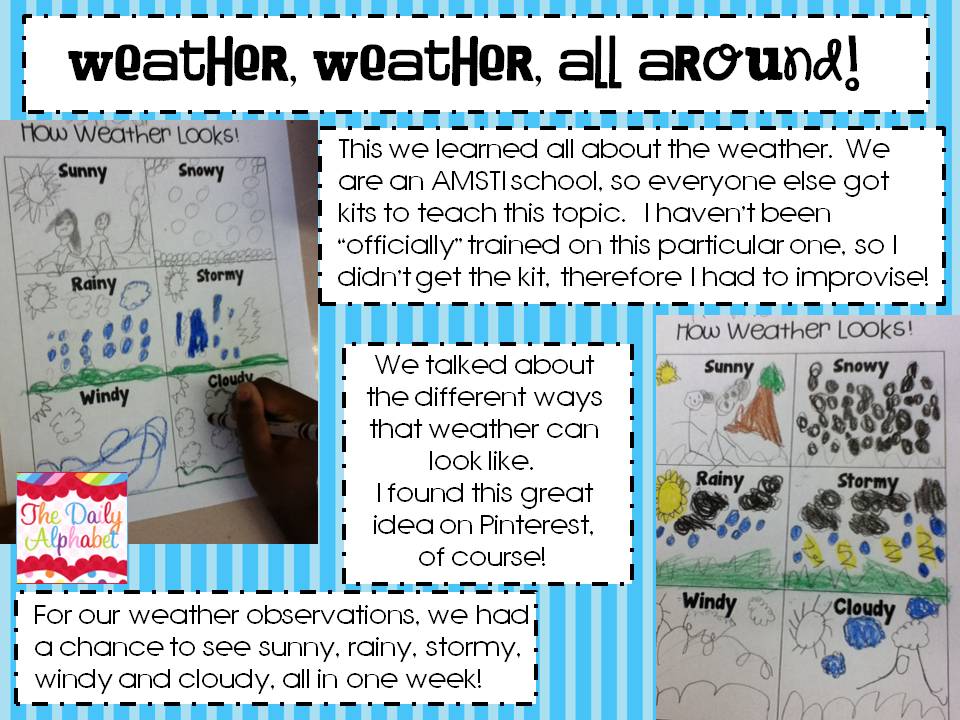 Weather, Weather, all around!
How Weather Looks!
Sunny
Snowy
Rainy
Stormy
Windy
Cloudy
The Daily
Alphabet
This we learned all about the weather. We
are an AMSTI school, so everyone else got
kits to teach this topic. I haven't been
“officially” trained on this particular one, so I
didn't get the kit, therefore I had to improvise!
We talked about
the different ways
that weather can
look like.
I found this great
idea on Pinterest,
of course!
How Weather Looks!
Sunny
Snowy
Rainy
Stormy
Windy
Cloudy
For our weather observations, we had
a chance to see sunny, rainy, stormy,
windy and cloudy, all in one week!